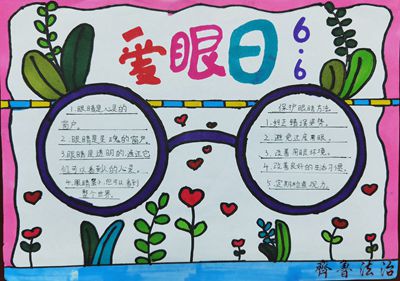 爱眼日
6.6
1.眼睛是心灵的
窗户。
2.眼睛是灵魂的窗户。
3.眼睛是透明的,通过它
们可以看到人的心灵。
4.眼睛,您可以看到
整个世界。
保护眼睛方法
1.纠正错误姿势。
2.避免过度用眼。
3.改善用眼环境。
4.改善良好的生活习惯。
5.定期检查视力。
齐鲁法治